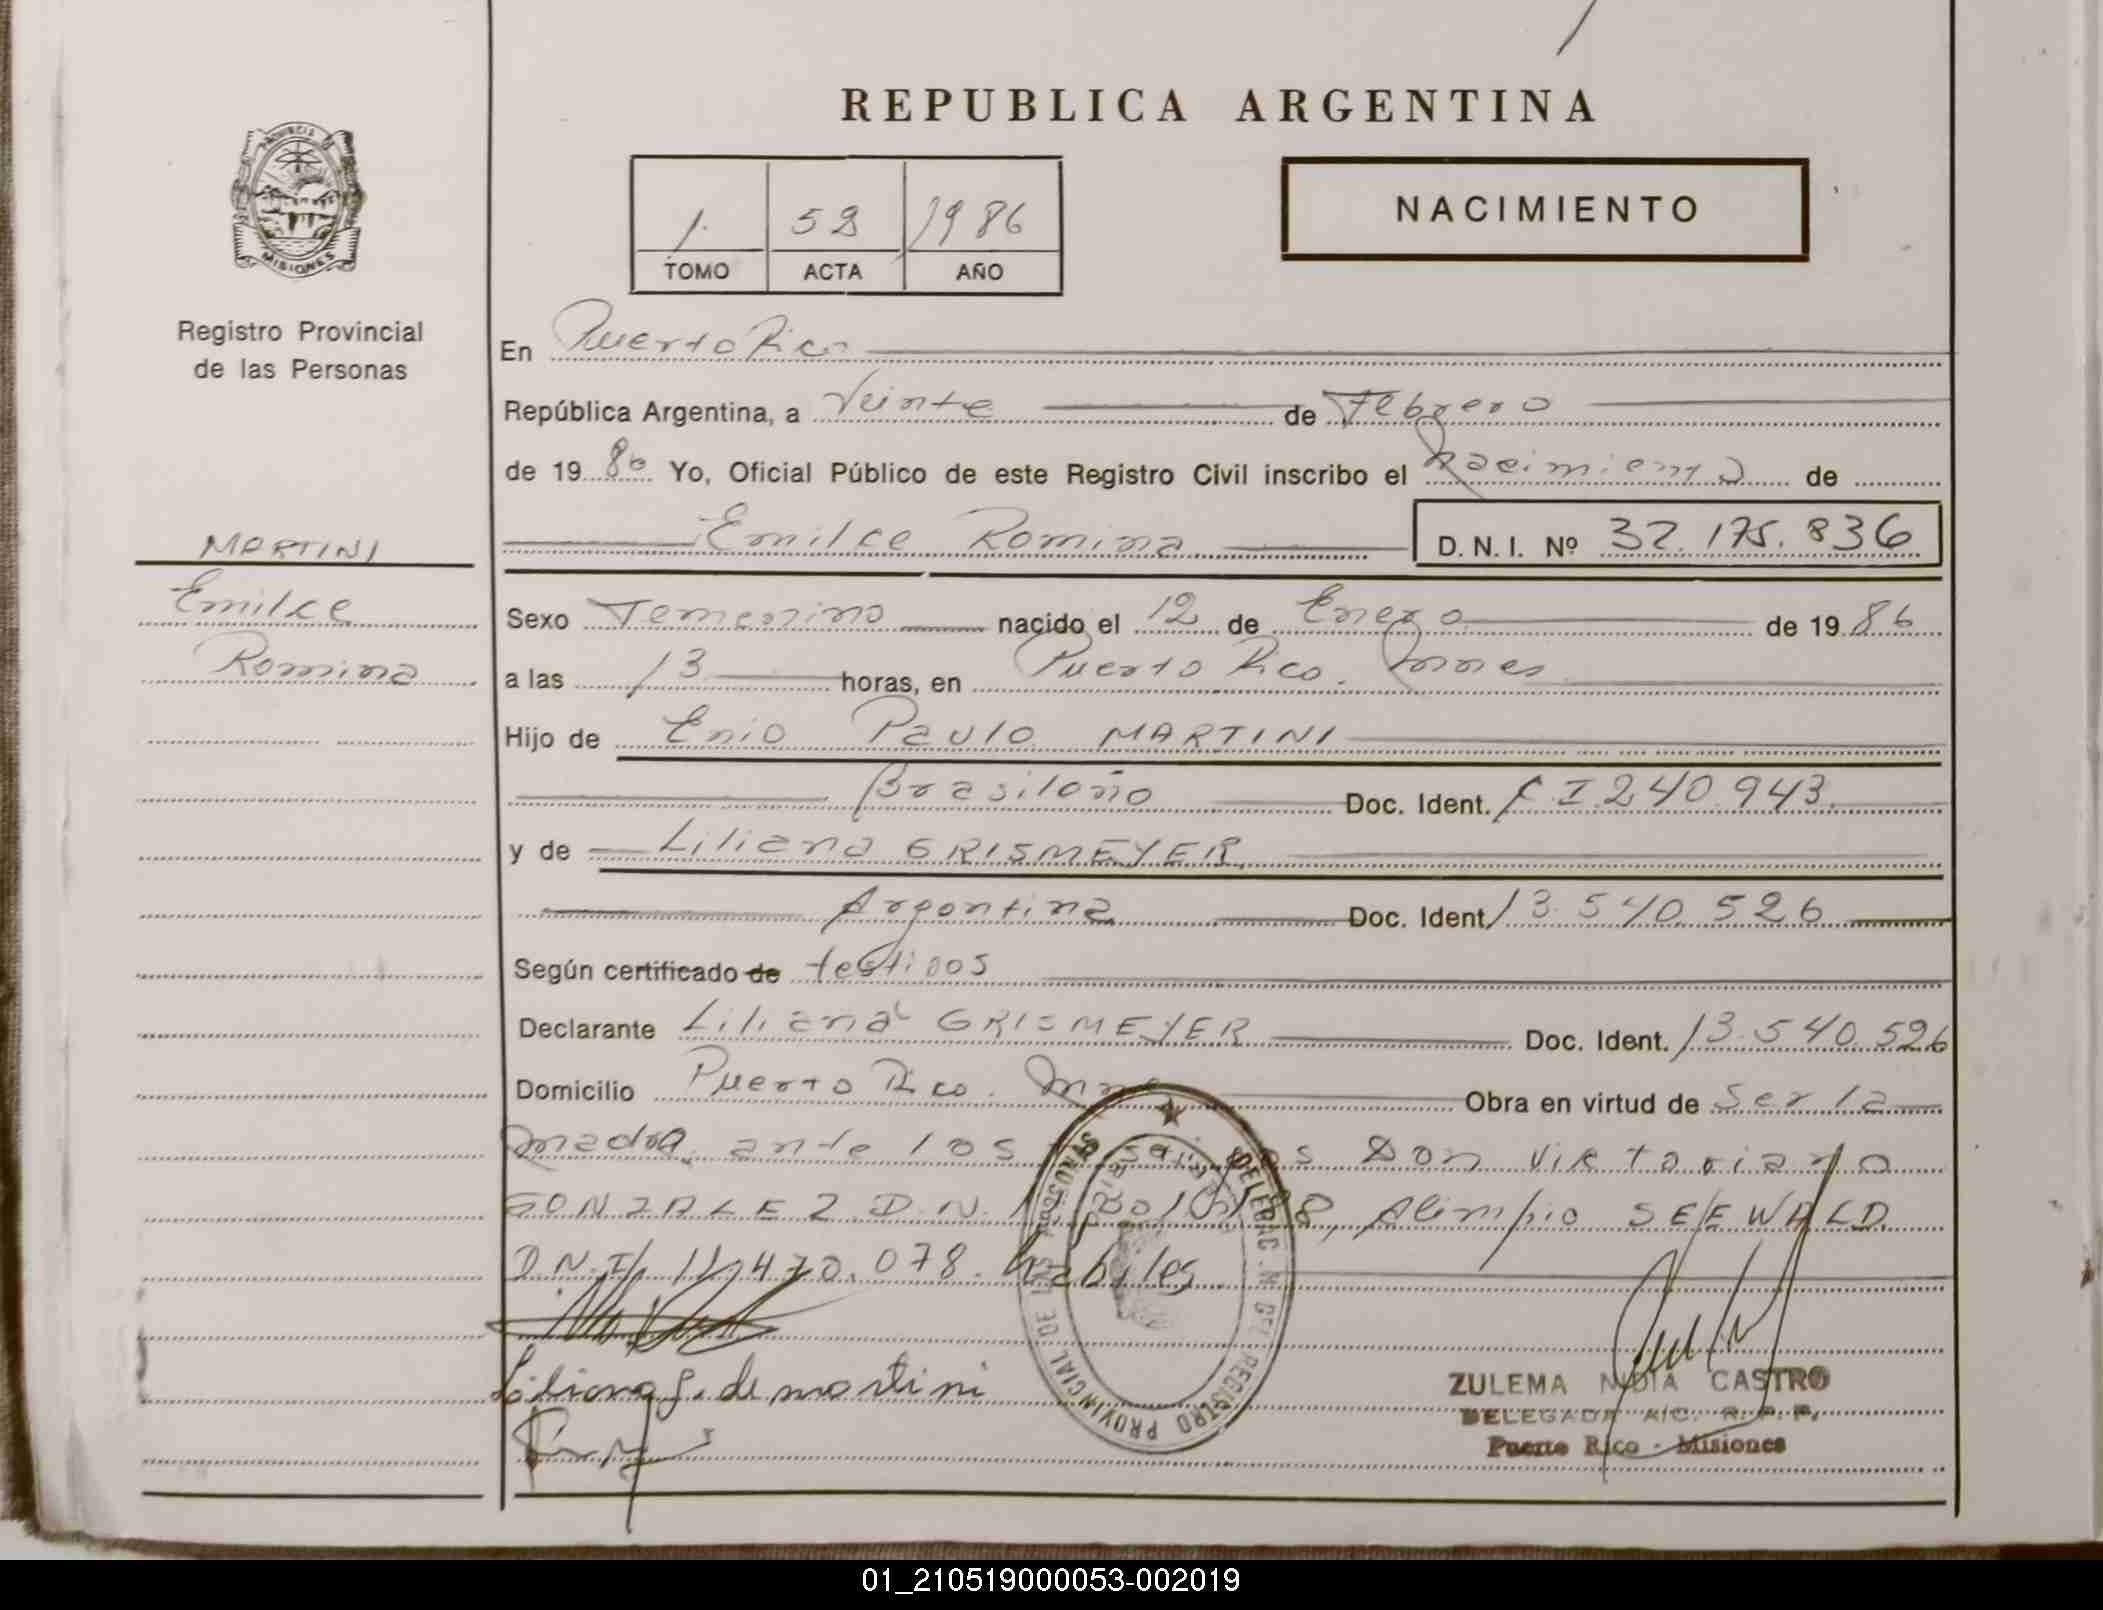 REPUBLICA ARGENTINA
PROVINCIA DE MISIONES
1. 52 1986
TOMO ACTA AÑO
NACIMIENTO
Registro Provincial
de las Personas
MARTINI
Emilce
Romina
En Puerto Rico
República Argentina, a Veinte de Febrero
de 19 86 Yo, Oficial Público de este Registro Civil inscribo el Nacimiento de
Emilce Romina D. N. I. Nº 32.175.836
Sexo Femenino nacido el 12 de Enero de 19 86
a las 13 horas, en Puerto Rico. Mnes
Hijo de Enio Paulo MARTINI
Brasileño Doc. Ident. C I 240.943.
y de Liliana GRISMEYER
Argentina Doc. Ident 13.540.526
Según certificado de testigos
Declarante Liliana GRISMEYER Doc. Ident. 13.540.526
Domicilio Puerto Rico. Obra en virtud de Ser la
madre ante los Don Victoriano
GONZALEZ D.N. Olimpio SEEWALD
D.N.I. 11.470.078. habiles
Liliana G. de martini
DELEGAC.N DEL REGISTRO PROVINCIAL DE LAS PERSONAS
ZULEMA NIDIA CASTRO
DELEGADA A/C. R. P. P.
Puerto Rico - Misiones
01_210519000053-002019